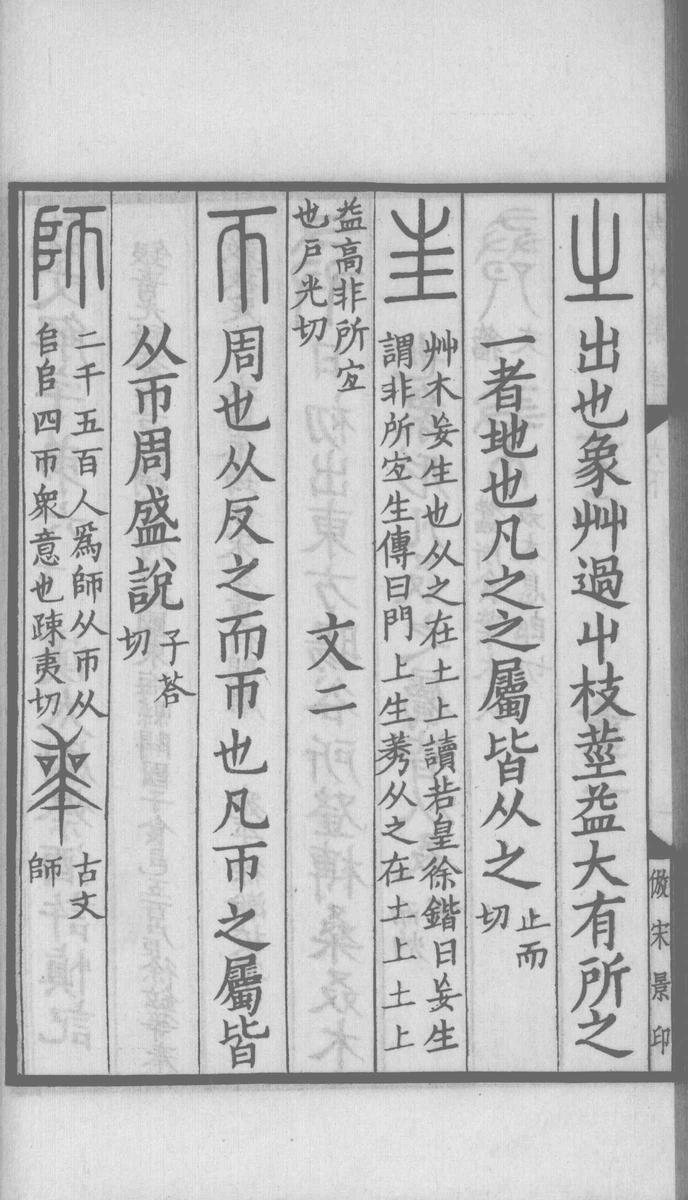 㞢 出也象艸過屮枝莖益大有所之
一者地也凡之之屬皆从之 止而
切
㞷 艸木妄生也从之在土上讀若皇徐鍇曰妄生
謂非所宜生傳曰門上生莠从之在土上土上
益高非所宜
也戶光切
文二
帀 周也从反之而帀也凡帀之屬皆
从帀周盛說 子荅
切
師 二千五百人爲師从帀从
𠂤𠂤四帀衆意也疎夷切
古文
師
倣宋景印